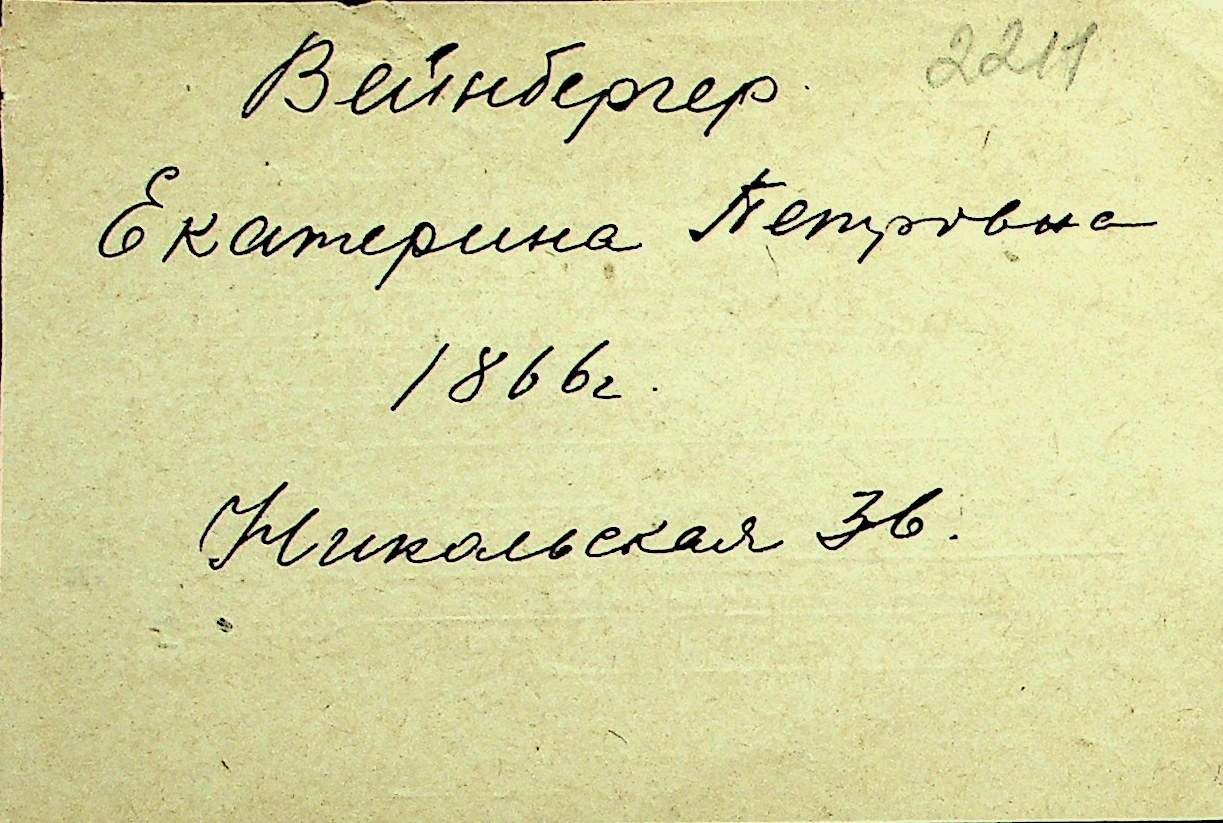 2211
Вейнбергер
Екатерина Петровна
1866г.
Никольская 36.